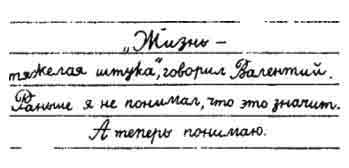 „Жизнь –
тяжелая штука“, говорил Валентий.
Раньше я не понимал, что это значит.
А теперь понимаю.